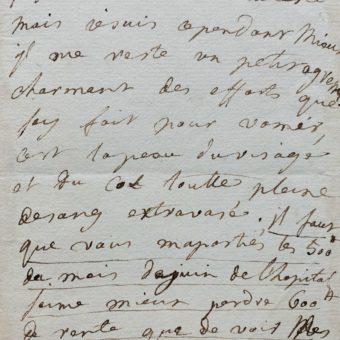 mais je suis cependant mieux
il me reste un petit agrement
charmant des efforts que
jay fait pour vomir,
cest la peau du visage
et du col toutte pleine
de sang extravasé. il faut
que vous maportiés les 500#
du mois de juin de lhopital
jaime mieux perdre 600#
de rente que de voir